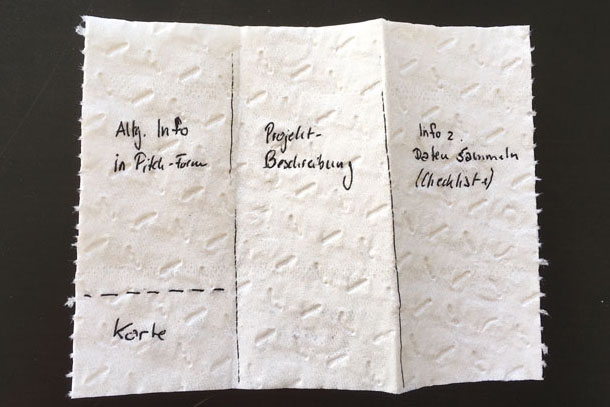 Allg. Info
in Pitch-Form
Karte
Projekt-
Beschreibung
Info z.
Daten sammeln
(Checkliste)